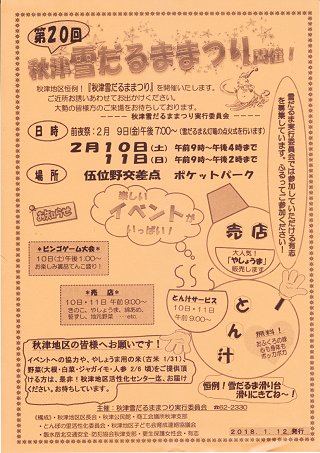 第20回
秋津雪だるままつり開催!
秋津地区恒例!『秋津雪だるままつり』を開催いたします。
ご近所お誘いあわせてお出かけください。
大勢の皆様方のご来場をお待ちしております。
秋津雪だるままつり実行委員会
日時 前夜祭:2月 9日(金)午後7:00~(雪だるま&灯籠の点火式を行います)
2月10日(土)午前9時~午後4時まで
11日(日)午前9時~午後2時まで
場所 伍位野交差点 ポケットパーク
雪だるま実行委員会では参加していただける有志
を募集しています。ふるってご参加ください!
お知らせ
楽しい
イベントが
いっぱい!
*ビンゴゲーム大会*
10日(土)午後1:00~
お楽しみ賞品てんこ盛り!
売店
大人気!
「やしょうま」
販売します
*売店*
10日・11日 午前9:00~
きのこ、やしょうま、綿あめ、
笹ずし、地元野菜 …etc.
とん汁サービス
10日・11日
午前9:00~
とん汁
無料!
おふくろの味
心も身体も
ポッカポカ
秋津地区の皆様へお願いです!
イベントへの協力や、やしょうま用の米(古米 1/31)、
野菜(大根・白菜・ジャガイモ・人参 2/6 頃)をご提供頂
ける方は、是非!秋津地区活性化センター迄、お届け
ください。お待ちしています。
恒例!雪だるま滑り台
滑りにきてね~!
主催:秋津雪だるままつり実行委員会 ☎62-2330
(構成)・秋津地区区長会・秋津公民館・商工会議所秋津支部
・とんぼの里活性化委員会・秋津地区子ども会育成連絡協議会
・飯水岳北交通安全・防犯協会秋津支部・更生保護女性会・有志
2018.1.12.発行